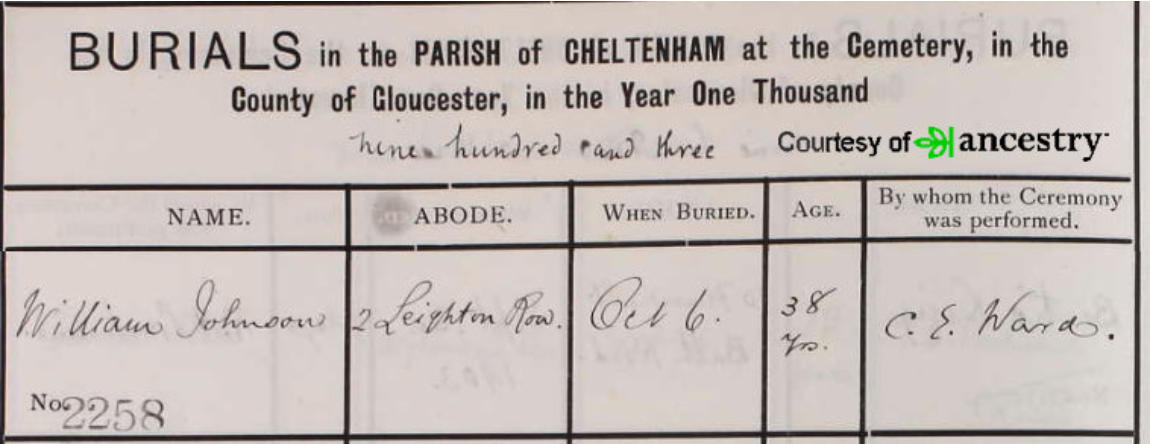 BURIALS in the PARISH of CHELTENHAM at the Cemetery, in the
County of Gloucester, in the Year One Thousand
nine hundred and three Courtesy of ancestry
NAME. ABODE. WHEN BURIED. AGE. By whom the Ceremony
was performed.
William Johnson 2 Leighton Row. Oct 6. 38
yrs. C. E. Ward.
No 2258